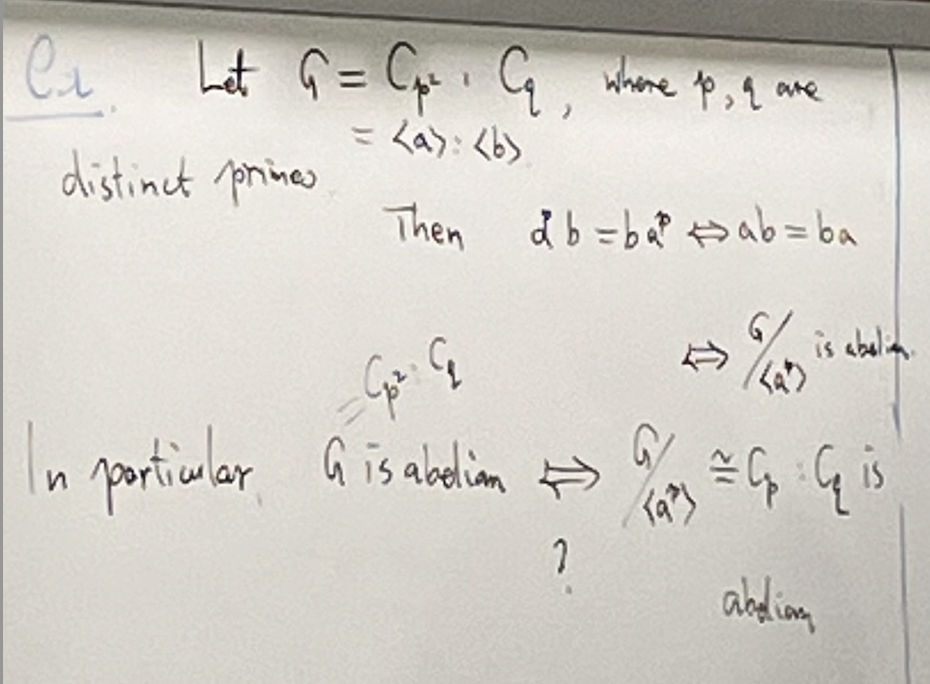 Ex. Let G = C_{p²} : C_q, where p, q are
= ⟨a⟩ : ⟨b⟩
distinct primes
Then a^p b = b a^p ⇔ ab = ba
⇔ G/⟨a^p⟩ is abelian.
= C_{p²} : C_q
In particular, G is abelian ⇔ G/⟨a^p⟩ ≅ C_p : C_q is
?
abelian